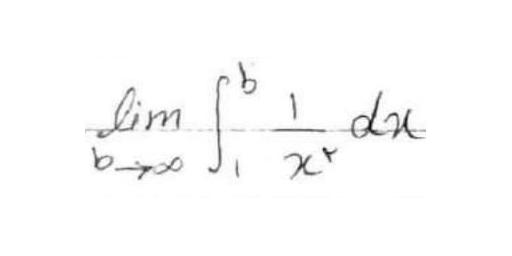 lim_{b→∞} ∫_1^b 1/x^r dx